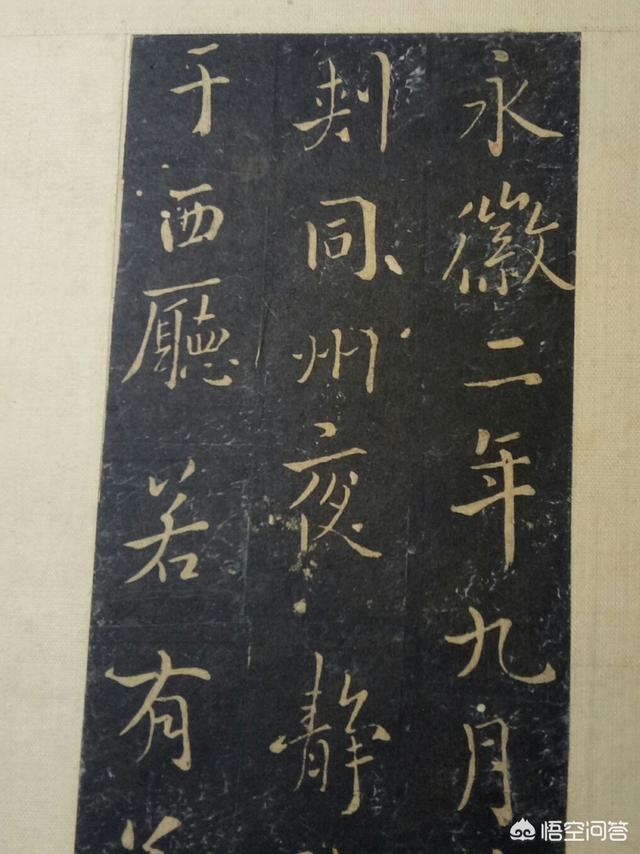 永徽二年九月
刾同州夜静
于西廳若有
悟空问答